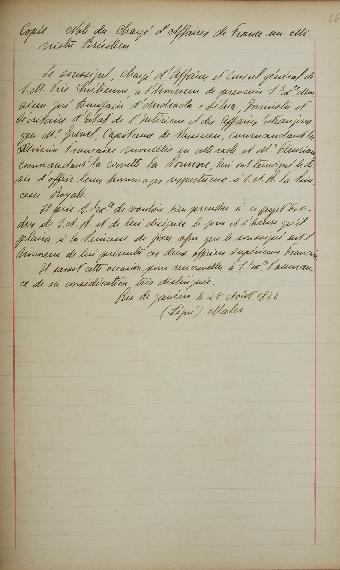 Copie Note du Chargé d'Affaires de France au Mi
nistre Brésilien
Le soussigné, Chargé d'Affaires et Consul général de
S. M. Très Chrétienne, a l'honneur de prévenir S. Exce Mon
sieur José Bonifacio d'Andrada e Silva, Ministre et
Secrétaire d'Etat de l'Intérieur et des Affaires Etrangères
que Mr Grivel, Capitaine de Vaisseau, commandant la
Division Française mouillée en cette rade et Mr
commandant la corvette la Pomone, lui ont témoigné le dé
sir d'offrir leurs hommages respectueux à S. A. R. la Prin
cesse Royale.
Il prie S. Exce de vouloir bien prendre à ce sujet les or
dres de S. A. R. et de lui désigner le jour et l'heure qu'il
plaira à la Princesse de fixer afin que le soussigné ait l'
honneur de lui présenter ces deux officiers supérieurs français
Il saisit cette occasion pour renouveller à S. Exce l'assuran
ce de sa considération très distinguée.
Rio de Janeiro le 28 Août 1822
(Signé) Maler